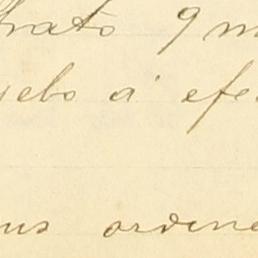 trato q m
velo á efe
us ordene